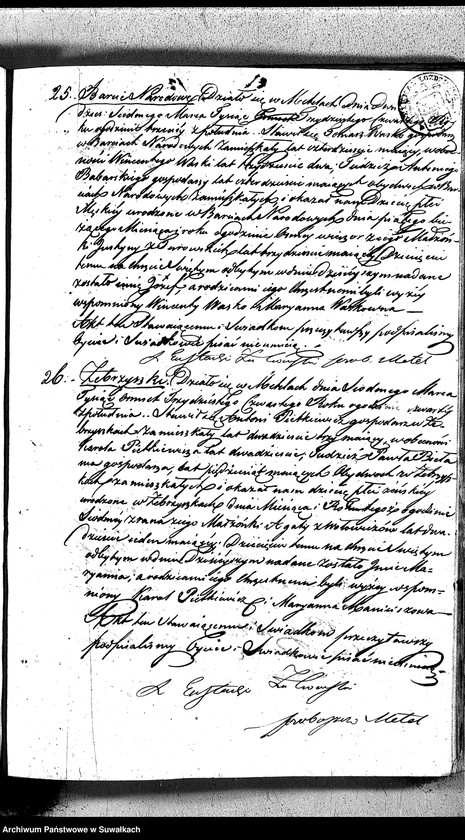 13
25. Barcie Narodowe Działo się w Metelach Dnia
dzień Siodmego Marca Tysiąc Osmset trzydziestego czwartego Ro-
ku o godzinie trzeciej z południa. Stawił się Tomasz Wasko gospodarz
w Barciach Narodowych Zamieszkały lat czterdzieści mający, w obec-
ności Wincentego Waski lat trzydzieście dwa, Tudzież Antoniego
Babarskiego gospodarzy lat czterdzieści mających obydwóch w Bar-
ciach Narodowych zamieszkałych i okazał nam Dziecię płci
Męskiej urodzone w Barciach Narodowych dnia piątego bie-
żącego Miesiąca i roku o godzinie osmej wieczor z jego Małżon-
ki Justyny z lat trzydzieści mającej. Dziecięciu
temu na Chrzcie Świętym odbytym w dniu Dzisiejszym nadane
zostało imię Józef a rodzicami jego Chrzestnemi byli wyżej
wspomniony Wincenty Wasko i Maryanna Waskowna
Akt ten Stawaiącemu i Świadkom przeczytany podpisaliśmy
Oyciec i Świadkowie pisać nieumieią.
X Eustachi prob. Metel
26. Zebrzyski. Działo się w Metelach dnia Siodmego Marca
Tysiąc Osmset Trzydziestego Czwartego Roku o godzinie czwartej
z południa. Stawił się Antoni Pietkiewicz gospodarz w Ze-
brzyskach zamieszkały lat dwadzieścia trzy mający, w obecności
Karola Pietkiewicza lat dwadzieścia, Tudzież Pawła
gospodarza, lat pięćdziesiąt mających Obydwóch w Zebrzys-
kach zamieszkałych i okazał nam dziecię płci żeńskiej
urodzone w Zebrzyskach dnia Miesiąca i Roku o godzinie
Siodmej z rana z jego Małżonki Agaty z lat dwa-
dzieścia jeden mającej. Dziecięciu temu na Chrzcie Świętym
odbytym w dniu Dzisiejszym nadane zostało Imie Ma-
ryanna, a rodzicami jego Chrzestnemi byli wyżej wspom-
niony Karol Pietkiewicz i Maryanna
Akt ten Stawaiącemu i Świadkom przeczytawszy
podpisaliśmy Oyciec i Świadkowie pisać nieumieią
X Eustachi
proboszcz Metel
Archiwum Państwowe w Suwałkach